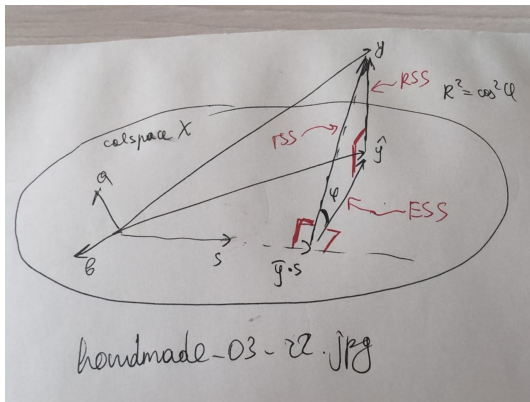 y
RSS
R² = cos²φ
colspace X
TSS
ŷ
a
φ
ESS
s
b
ȳ·s
homdmade-03-22.jpg